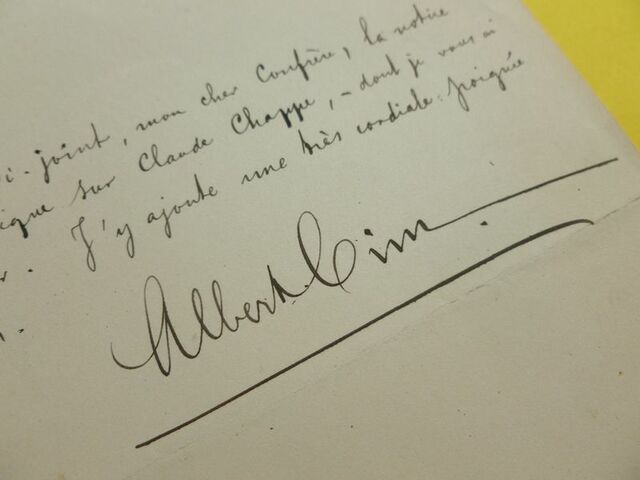 i-joint, mon cher Confrère, la notice
ique sur Claude Chappe, – dont je vous ai
r. J'y ajoute une très cordiale poignée
Albert Cim.